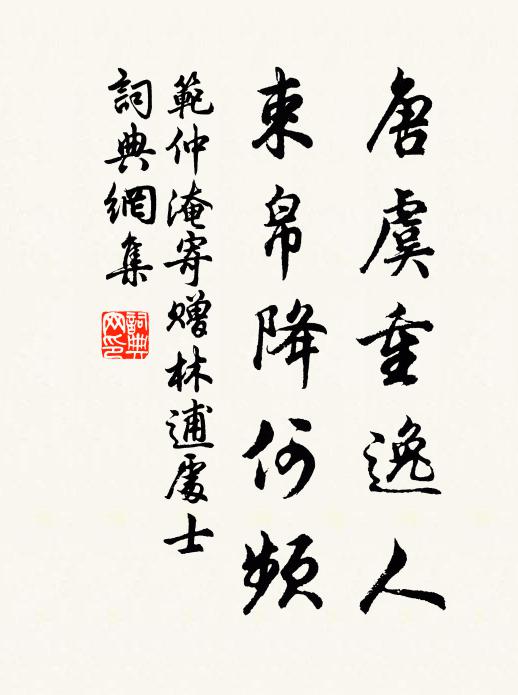 唐虞重逸人
束帛降何頻
範仲淹寄贈林逋處士
詞典網集
詞典网印